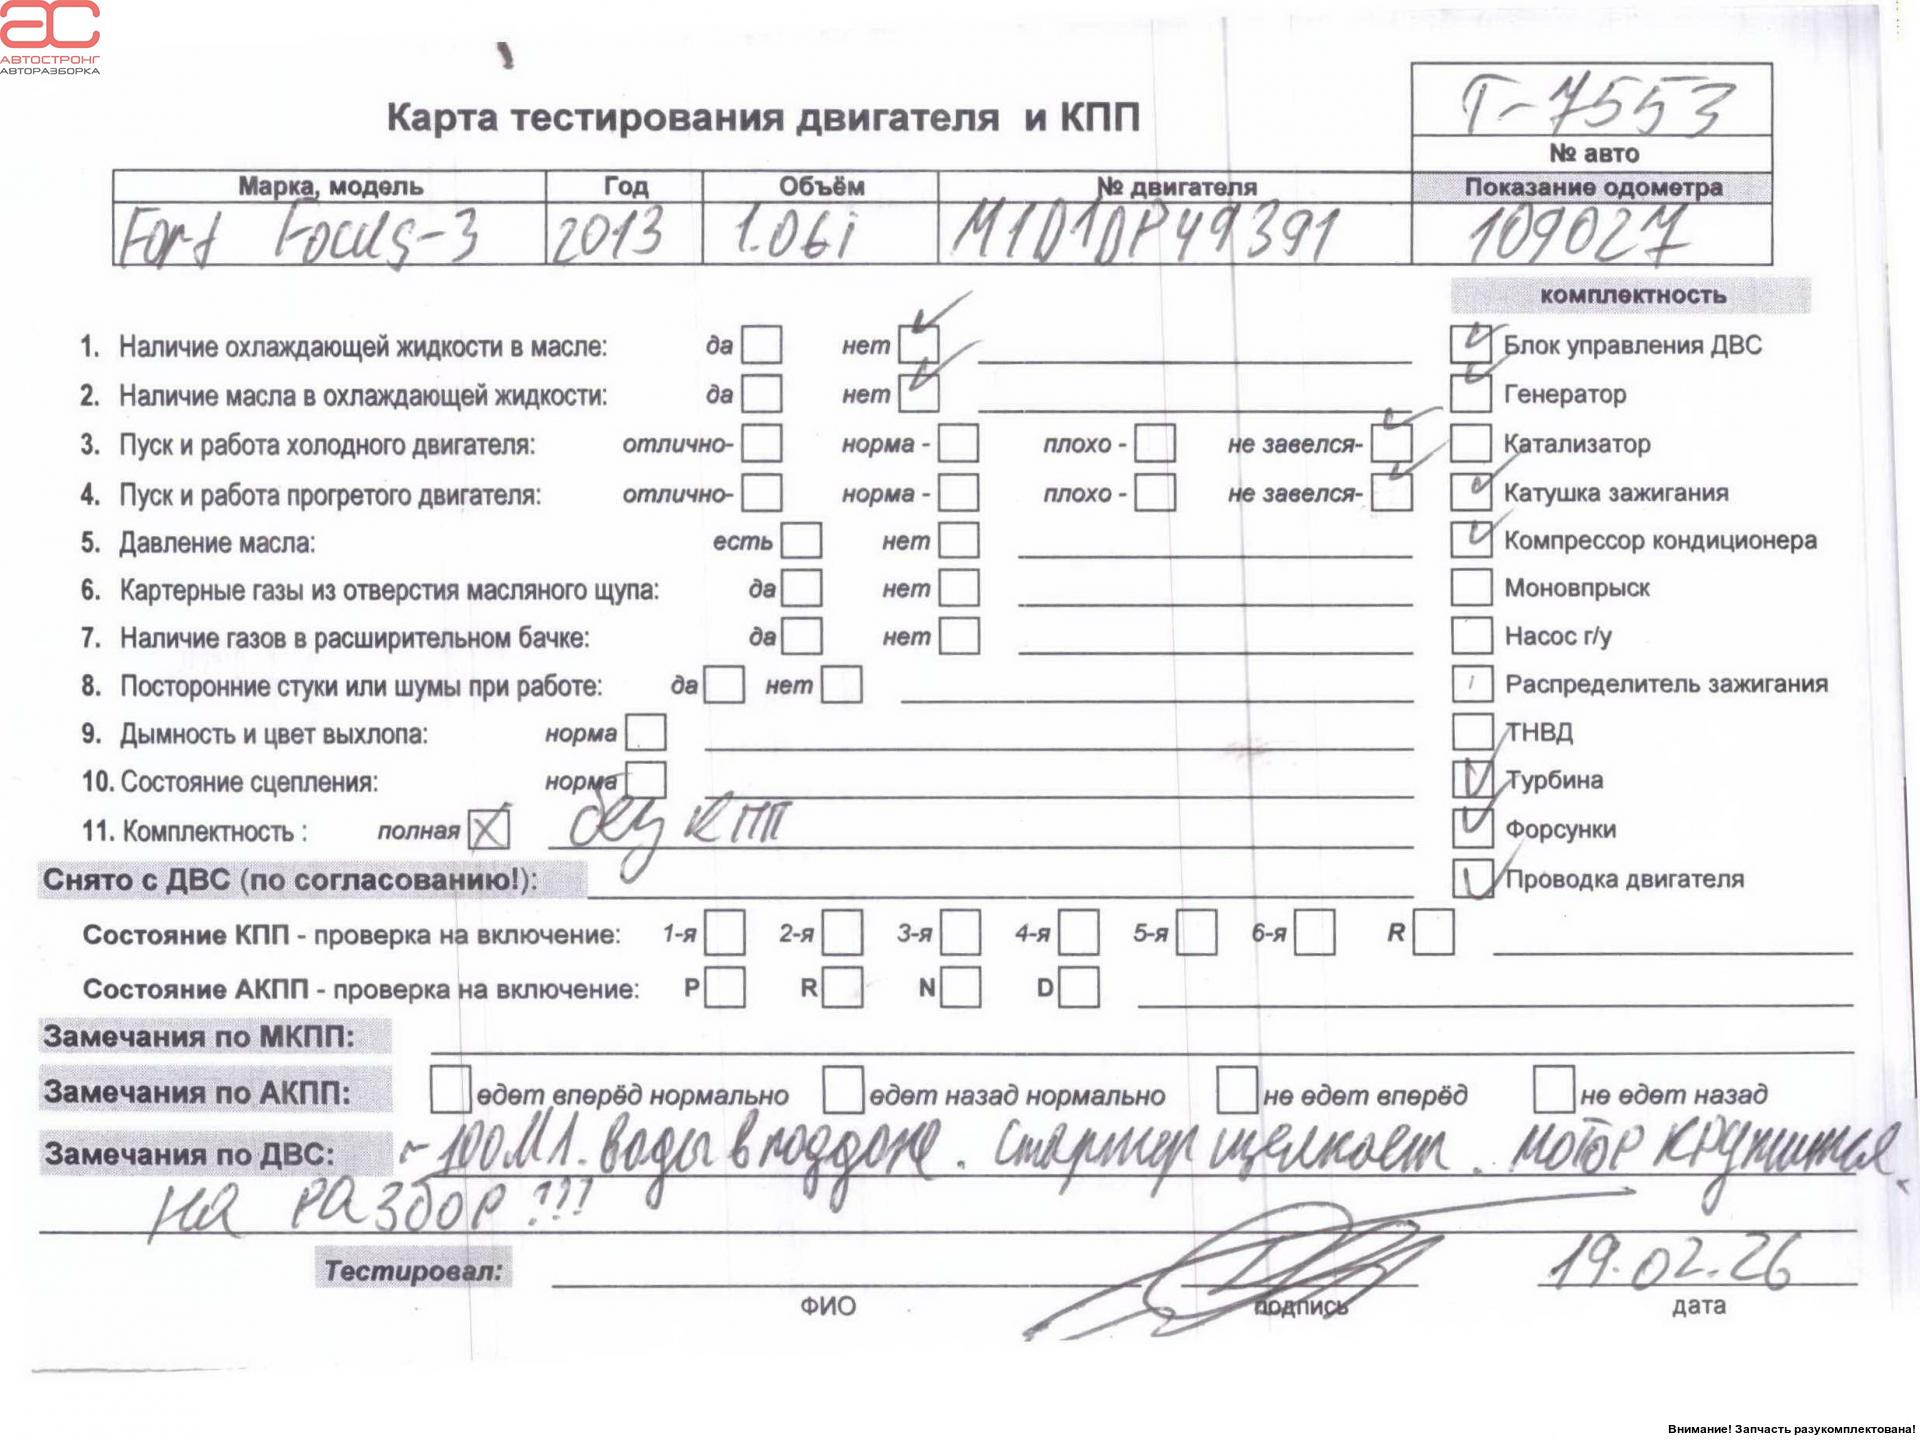 АС
АВТОСТРОНГ
АВТОРАЗБОРКА
Карта тестирования двигателя и КПП
T-7553
№ авто
Марка, модель Год Объём № двигателя Показание одометра
Ford Focus-3 2013 1.0Gi M1D1DP49391 109027
комплектность
1. Наличие охлаждающей жидкости в масле: да нет Блок управления ДВС
2. Наличие масла в охлаждающей жидкости: да нет Генератор
3. Пуск и работа холодного двигателя: отлично- норма - плохо - не завелся- Катализатор
4. Пуск и работа прогретого двигателя: отлично- норма - плохо - не завелся- Катушка зажигания
5. Давление масла: есть нет Компрессор кондиционера
6. Картерные газы из отверстия масляного щупа: да нет Моновпрыск
7. Наличие газов в расширительном бачке: да нет Насос г/у
8. Посторонние стуки или шумы при работе: да нет Распределитель зажигания
9. Дымность и цвет выхлопа: норма ТНВД
10. Состояние сцепления: норма Турбина
11. Комплектность : полная без КПП Форсунки
Снято с ДВС (по согласованию!): Проводка двигателя
Состояние КПП - проверка на включение: 1-я 2-я 3-я 4-я 5-я 6-я R
Состояние АКПП - проверка на включение: P R N D
Замечания по МКПП:
Замечания по АКПП: едет вперёд нормально едет назад нормально не едет вперёд не едет назад
Замечания по ДВС: ~100мл. воды в поддоне. Стартер щелкает. мотор крутится.
на разбор!!!
Тестировал: 19.02.26
ФИО подпись дата
Внимание! Запчасть разукомплектована!